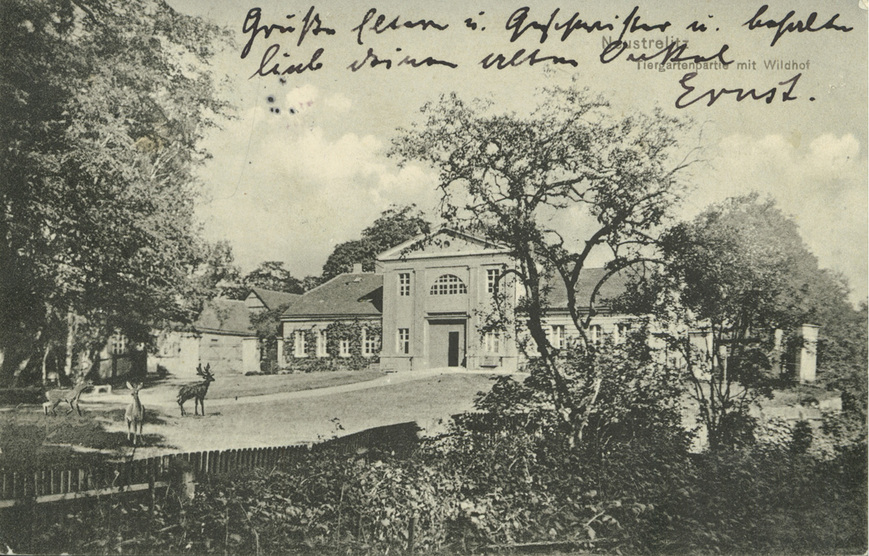 Grüße Eltern u. Geschwister u. behalte
Neustrelitz
lieb deinen alten Onkel
Tiergartenpartie mit Wildhof
Ernst.